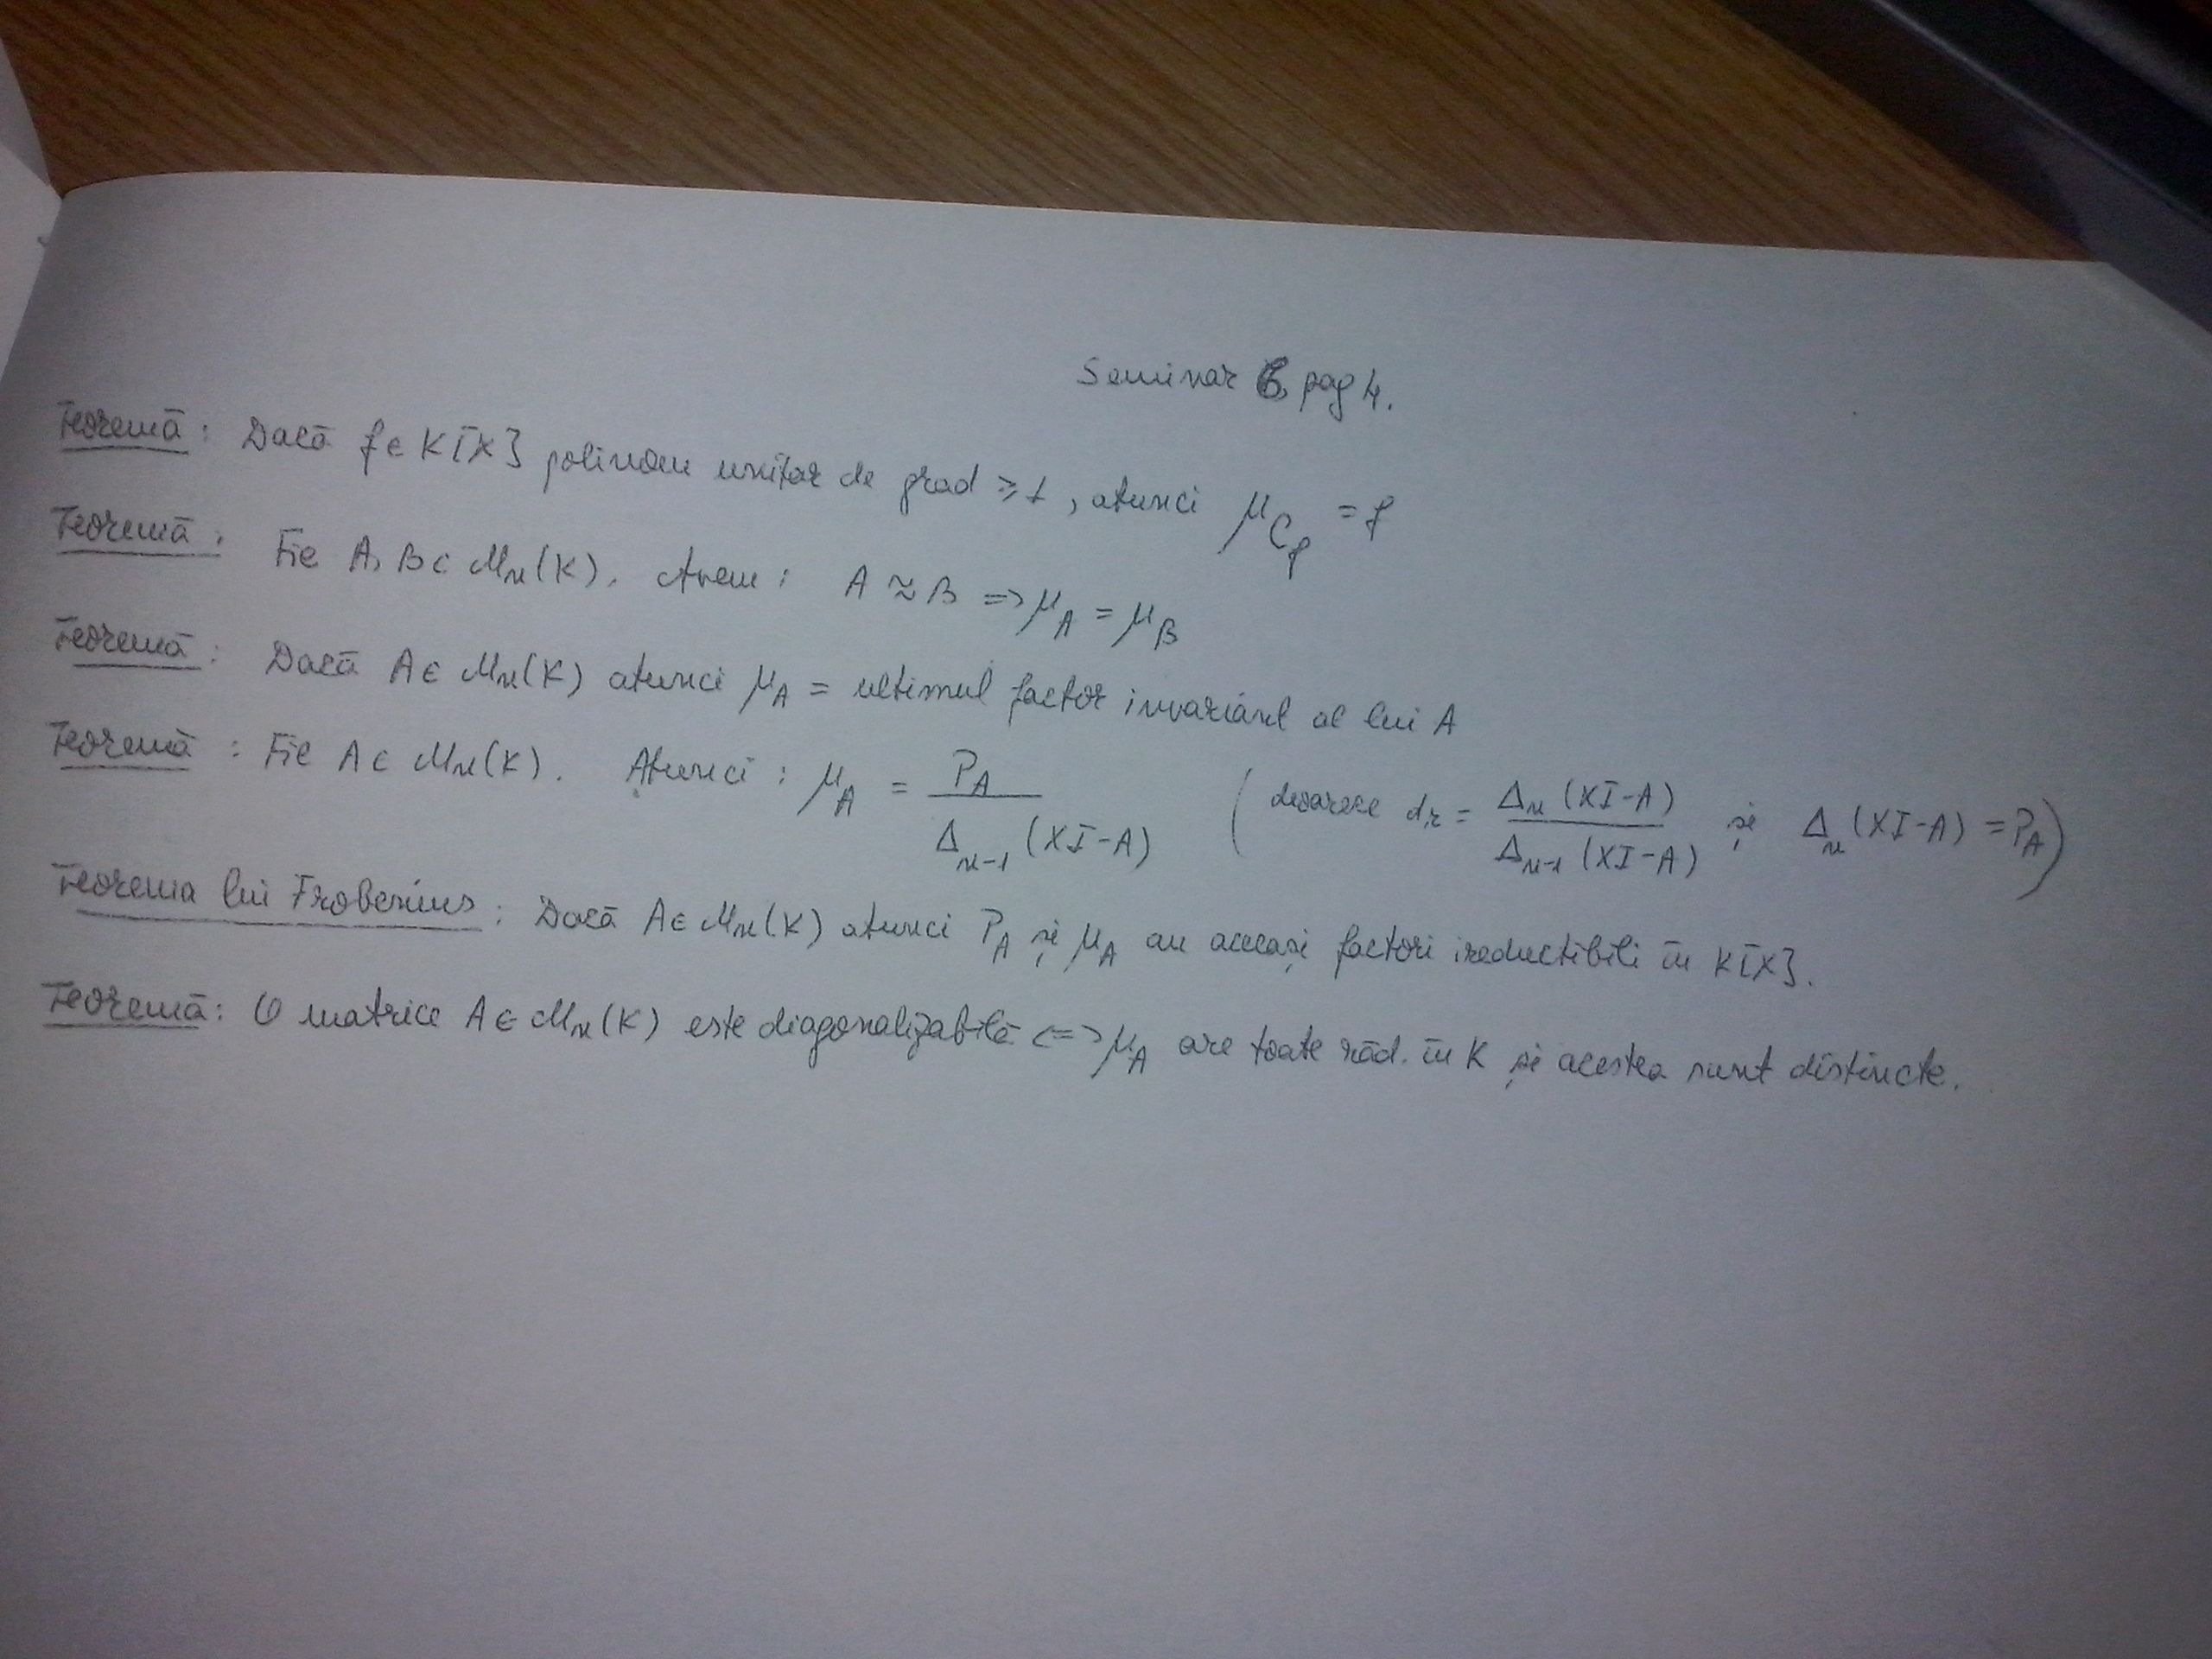 Seminar 6 pag 4.
Teoremă: Dacă f ∈ K[X] polinom unitar de grad ≥ 1, atunci μ_{C_f} = f
Teoremă: Fie A, B ∈ M_n(K). Avem: A ≈ B => μ_A = μ_B
Teoremă: Dacă A ∈ M_n(K) atunci μ_A = ultimul factor invariant al lui A
Teoremă: Fie A ∈ M_n(K). Atunci: μ_A = P_A / Δ_{n-1}(XI-A) (deoarece d_r = Δ_n(XI-A) / Δ_{n-1}(XI-A) și Δ_n(XI-A) = P_A)
Teorema lui Frobenius: Dacă A ∈ M_n(K) atunci P_A și μ_A au aceeași factori ireductibili în K[X].
Teoremă: O matrice A ∈ M_n(K) este diagonalizabilă <=> μ_A are toate răd. în K și acestea sunt distincte.